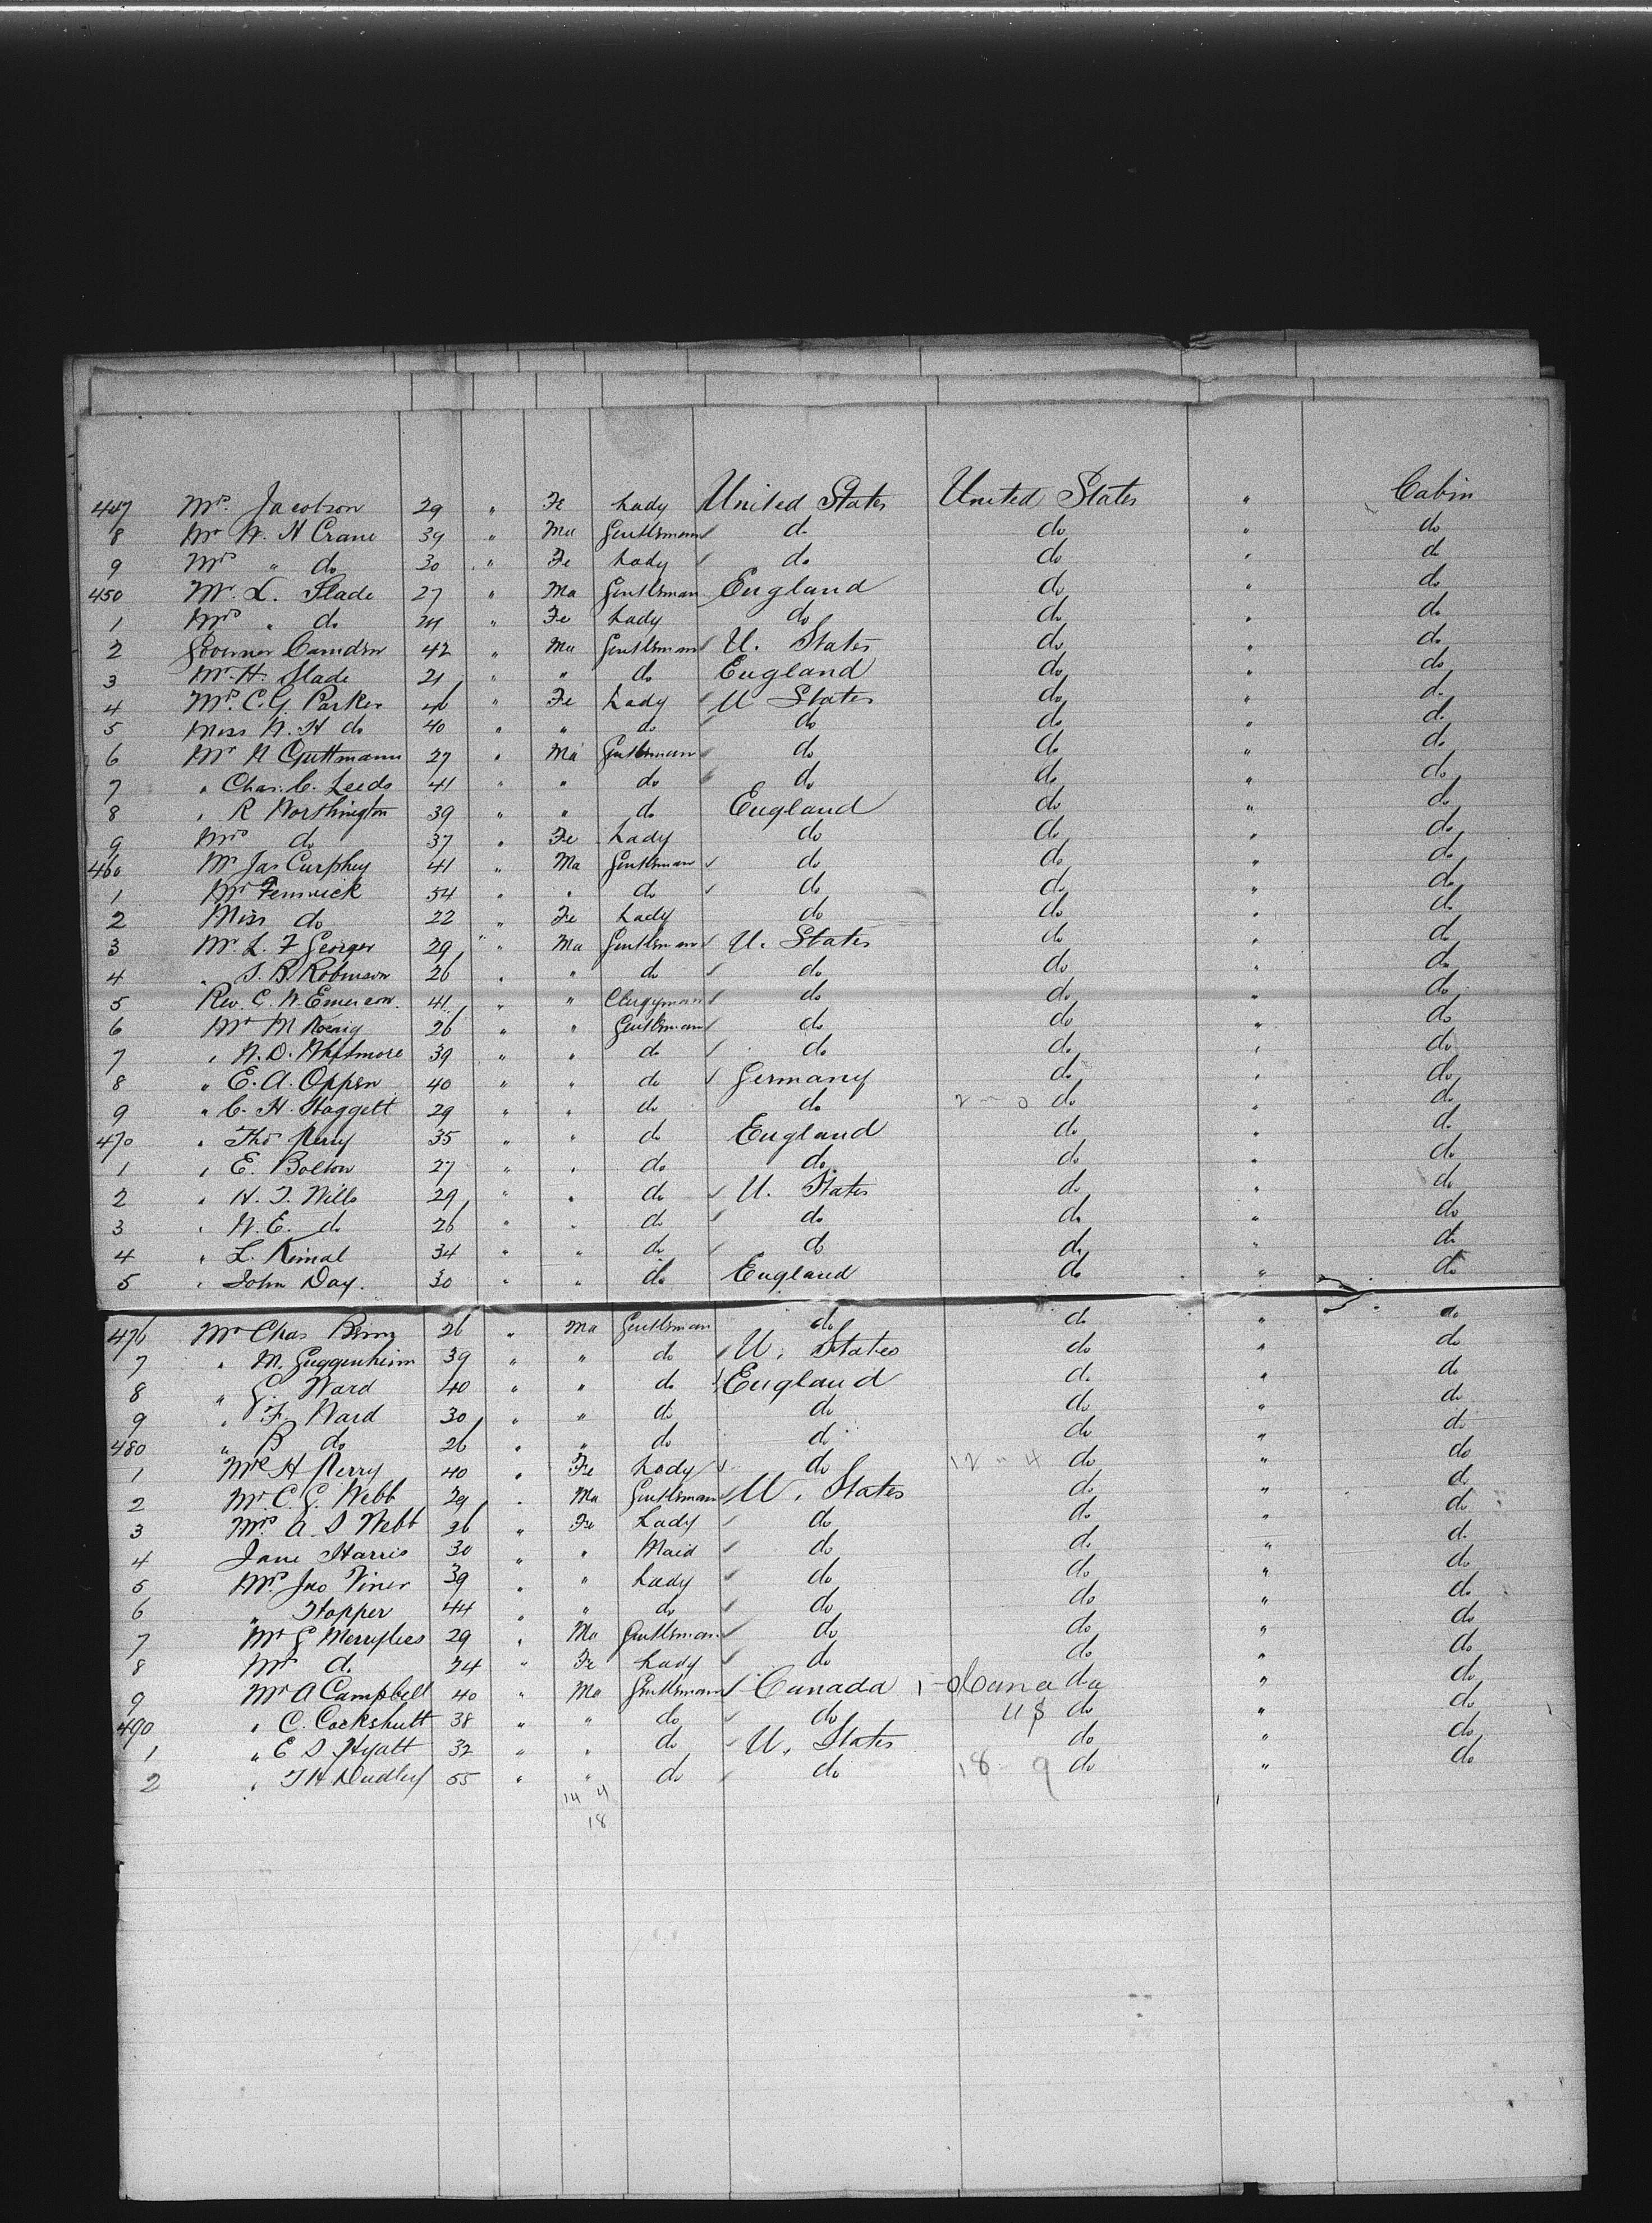 447 Mrs. Jacobson 29 " Fe Lady United States United States " Cabin
8 Mr W. H Crane 39 " Ma Gentleman do do " do
9 Mrs " do 30 " Fe Lady do do " do
450 Mr. L. Slade 27 " Ma Gentleman England do " do
1 Mrs " do 24 " Fe Lady do do " do
2 Governor Camden 42 " Ma Gentleman U. States do " do
3 Mr. H. Slade 21 " " do England do " do
4 Mrs. C. G Parker 46 " Fe Lady U States do " do
5 Miss N. H do 40 " " do do do " do
6 Mr N Guttmann 27 " Ma Gentleman do do " do
7 " Chas. C. Leeds 41 " " do do do " do
8 " R Worthington 39 " " do England do " do
9 Mrs do 37 " Fe Lady do do " do
460 Mr Jas Curphey 41 " Ma Gentleman do do " do
1 Mr Fenwick 54 " " do do do " do
2 Miss do 22 " Fe Lady do do " do
3 Mr. L. F Georger 29 " Ma Gentleman U. States do " do
4 " S. B. Robinson 26 " " do do do " do
5 Rev. C. W. Emerson 41 " " Clergyman do do " do
6 Mr M Koenig 26 " " Gentleman do do " do
7 " N. D. Whitmore 39 " " do do do " do
8 " E. A. Oppen 40 " " do Germany do " do
9 " C. H. Haggett 29 " " do do 2 - 0 do " do
470 " Thos Perry 35 " " do England do " do
1 " E. Bolton 27 " " do do do " do
2 " H. T. Wills 29 " " do U. States do " do
3 " W. E. do 26 " " do do do " do
4 " L. 34 " " do do do " do
5 " John Day. 30 " " do England do " do
476 Mr Chas 26 " Ma Gentleman do do " do
7 " M. Guggenheim 39 " " do U. States do " do
8 " G. Ward 40 " " do England do " do
9 " F. Ward 30 " " do do do " do
480 " B do 26 " " do do do " do
1 Mrs H Perry 40 " Fe Lady do 12 " 4 do " do
2 Mr. C. G. Webb 29 " Ma Gentleman U. States do " do
3 Mrs. A. S Webb 36 " Fe Lady do do " do
4 Jane Harris 30 " " Maid do do " do
5 Mrs. Jno Viner 39 " " Lady do do " do
6 " Hopper 44 " " do do do " do
7 Mr G Merrylees 29 " Ma Gentleman do do " do
8 Mrs do 24 " Fe Lady do do " do
9 Mr A Campbell 40 " Ma Gentleman Canada 1 - Canada " do
490 " C. Cockshutt 38 " " do do US do " do
1 " E S Hyatt 32 " " do U. States do " do
2 " T H Dudley 55 " " do do 18 9 do " do
14 4
18